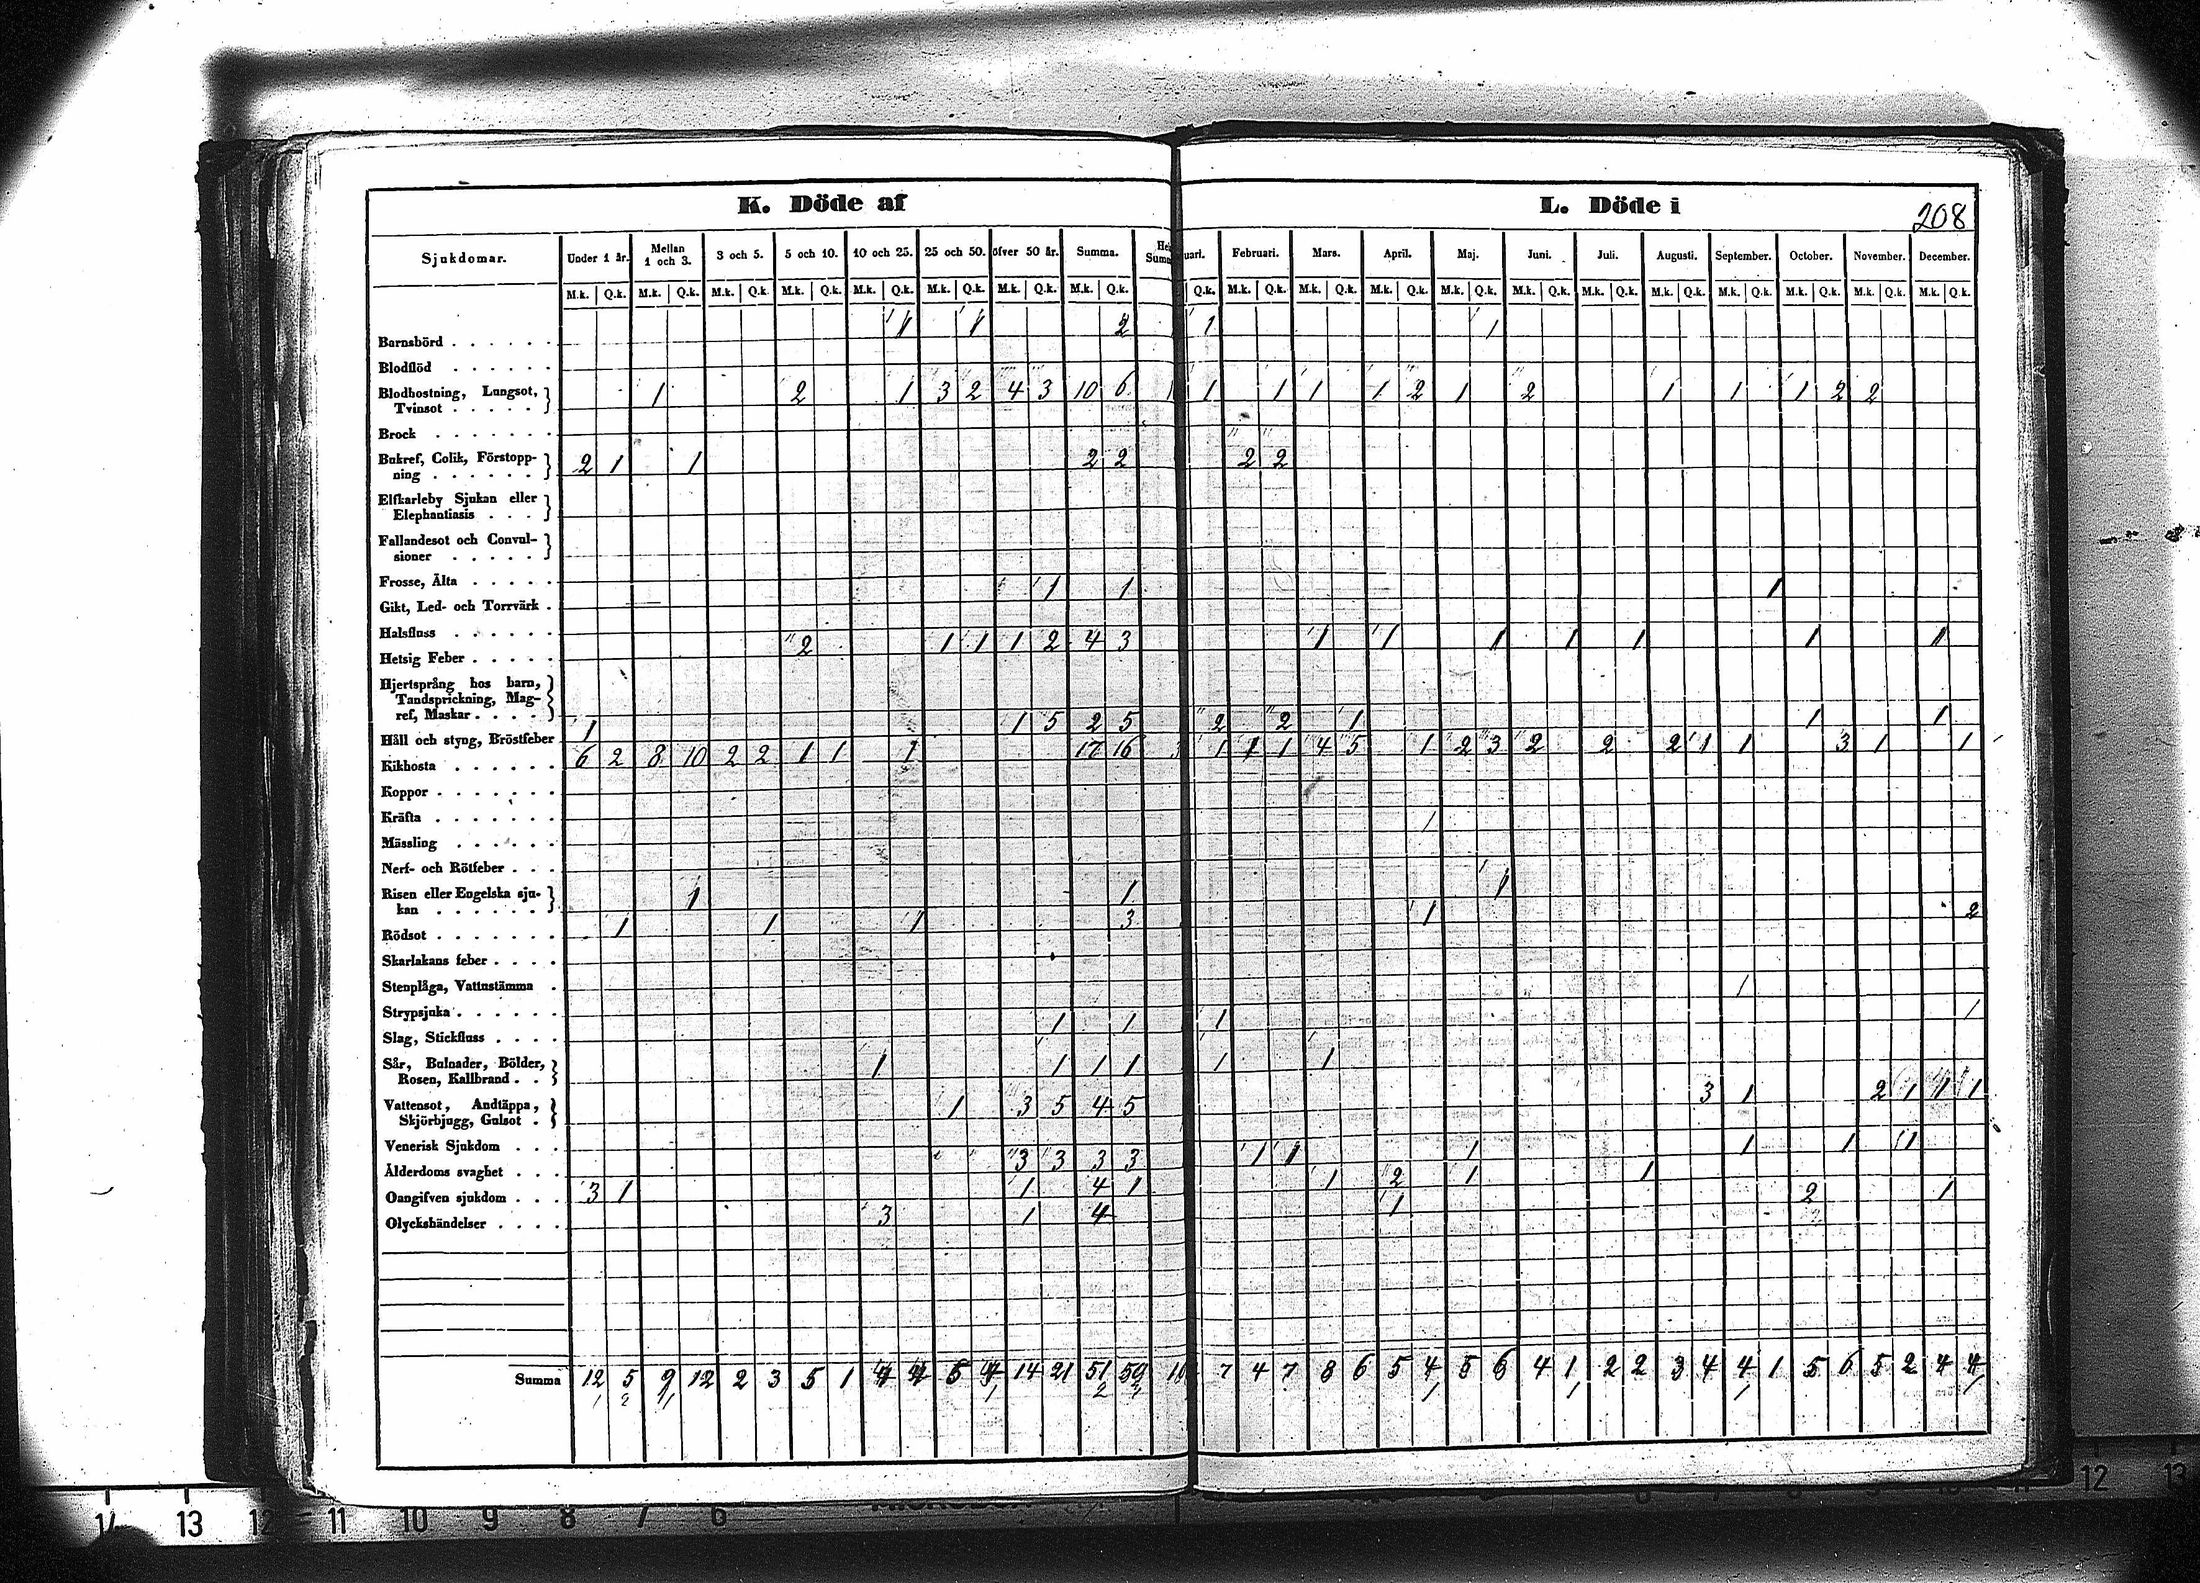 K. Döde af
L. Döde i
208
Sjukdomar. Under 1 år. Mellan 1 och 3. 3 och 5. 5 och 10. 10 och 25. 25 och 50. öfver 50 år. Summa. Februari. Mars. April. Maj. Juni. Juli. Augusti. September. October. November. December.
M.k. Q.k. M.k. Q.k. M.k. Q.k. M.k. Q.k. M.k. Q.k. M.k. Q.k. M.k. Q.k. M.k. Q.k. Q.k. M.k. Q.k. M.k. Q.k. M.k. Q.k. M.k. Q.k. M.k. Q.k. M.k. Q.k. M.k. Q.k. M.k. Q.k. M.k. Q.k. M.k. Q.k. M.k. Q.k.
Barnsbörd 1 1 2 1 1
Blodflöd
Blodhostning, Lungsot,
Tvinsot 1 2 1 3 2 4 3 10 6 1 1 1 1 2 1 2 1 1 1 2 2
Brock
Bukref, Colik, Förstopp-
ning 2 1 1 2 2 2 2
Elfkarleby Sjukan eller
Elephantiasis
Fallandesot och Convul-
sioner
Frosse, Älta 1 1 1
Gikt, Led- och Torrvärk
Halsfluss
Hetsig Feber 2 1 1 1 2 4 3 1 1 1 1 1 1 1
Hjertsprång hos barn,
Tandsprickning, Mag-
ref, Maskar
Håll och styng, Bröstfeber 1 1 5 2 5 2 2 1 1 1
Kikhosta 6 2 8 10 2 2 1 1 1 17 16 1 1 1 4 5 1 2 3 2 2 2 1 1 3 1 1
Koppor
Kräfta
Mässling
Nerf- och Rötfeber
Risen eller Engelska sju-
kan 1 1 1
Rödsot 1 1 1 3 1 2
Skarlakans feber
Stenplåga, Vattnstämma
Strypsjuka
Slag, Stickfluss 1 1 1
Sår, Bulnader, Bölder,
Rosen, Kallbrand 1 1 1 1 1 1
Vattensot, Andtäppa,
Skjörbjugg, Gulsot 1 3 5 4 5 3 1 2 1 1 1
Venerisk Sjukdom
Ålderdoms svaghet 3 3 3 3 1 1 1 1 1 1
Oangifven sjukdom 3 1 1 4 1 1 2 1 1
Olyckshändelser 3 1 4 1 2 1
Summa 12 5 9 12 2 3 5 1 4 4 5 4 14 21 51 50 7 4 7 8 6 5 4 5 6 4 1 2 2 3 4 4 1 5 6 5 2 4 4
14 13 12 11 10 9 8 7 6
12 13